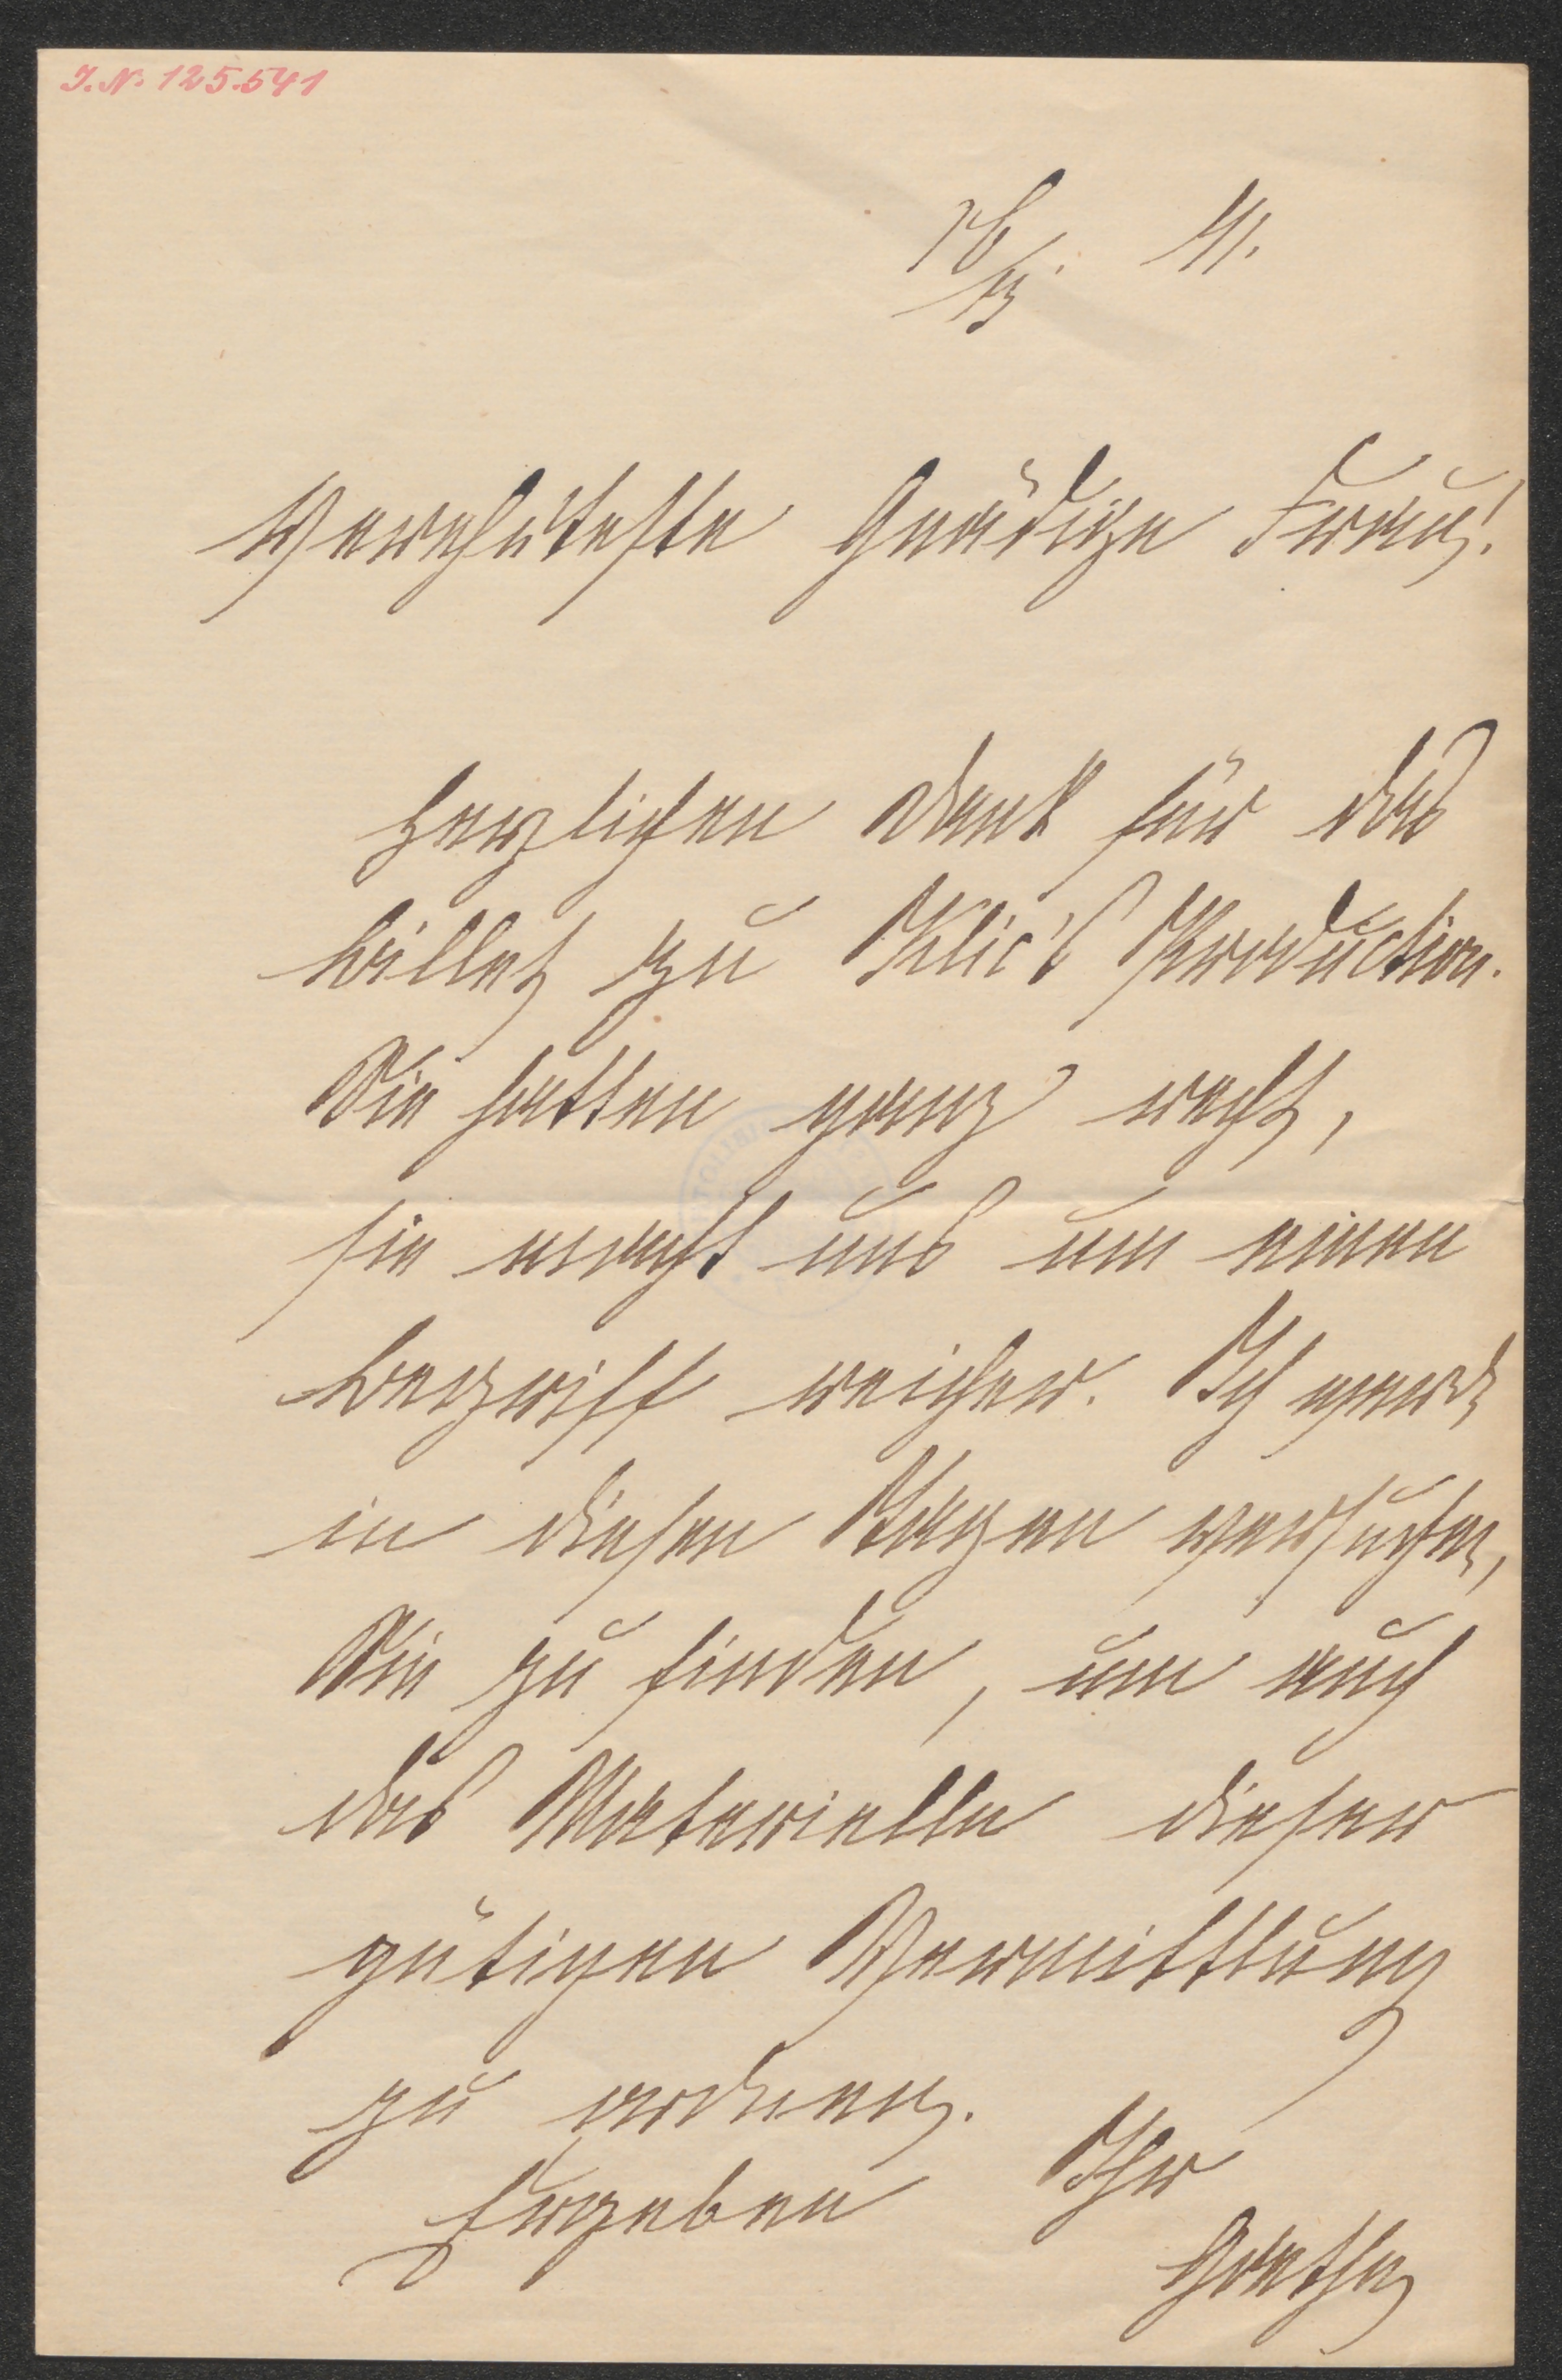 I. N. 125.541
26/3. 91.
Verehrteste Gnädige Frau!
Herzlichen Dank für das
Billet zu Klic's Production.
Sie hatten ganz recht,
sie macht uns um einen
Begriff reicher. Ich werde
in diesen Tagen versuchen,
Sie zu finden, um auch
das Materielle dieser
gütigen Vermittlung
zu ordnen.
Ergeben Ihr